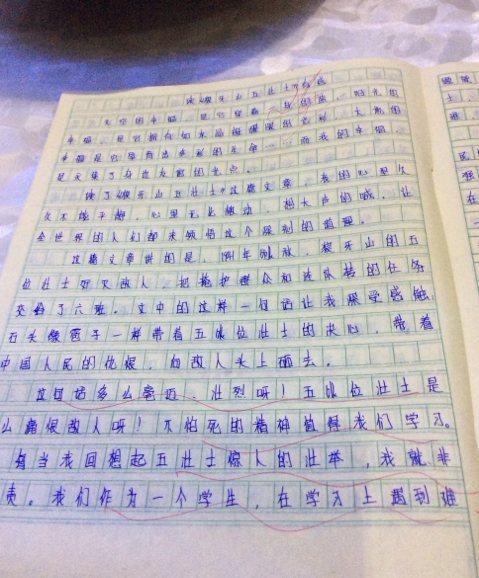 读《狼牙山五壮士》有感
天空的幸福,是它穿
幸福,是它拥有如水晶般
幸福是它 出 彩的生命……而我的幸福,
是天使了 的光点。
读了《狼牙山五壮士》这篇文章,我的心里久
久不能平静,心里无比激动,想大声的喊,让
全世界的人们都来领悟这个深刻的道理。
这篇文章讲的是, 狼牙山的五
位壮士 敌人,把掩护群众和连队转的任务
交给了六班。文中的这样一句话让我深受感触
石头像雹子一样带着五位壮士的决心,带着
中国人民的仇恨,向敌人头上砸去。
这句话多么豪迈、壮烈呀!五位壮士是
痛恨敌人呀!不怕死的精神值得我们学习。
每当我回想起五壮士惊人的壮举,我就非
责。我们作为一个学生,在学习上遇到难